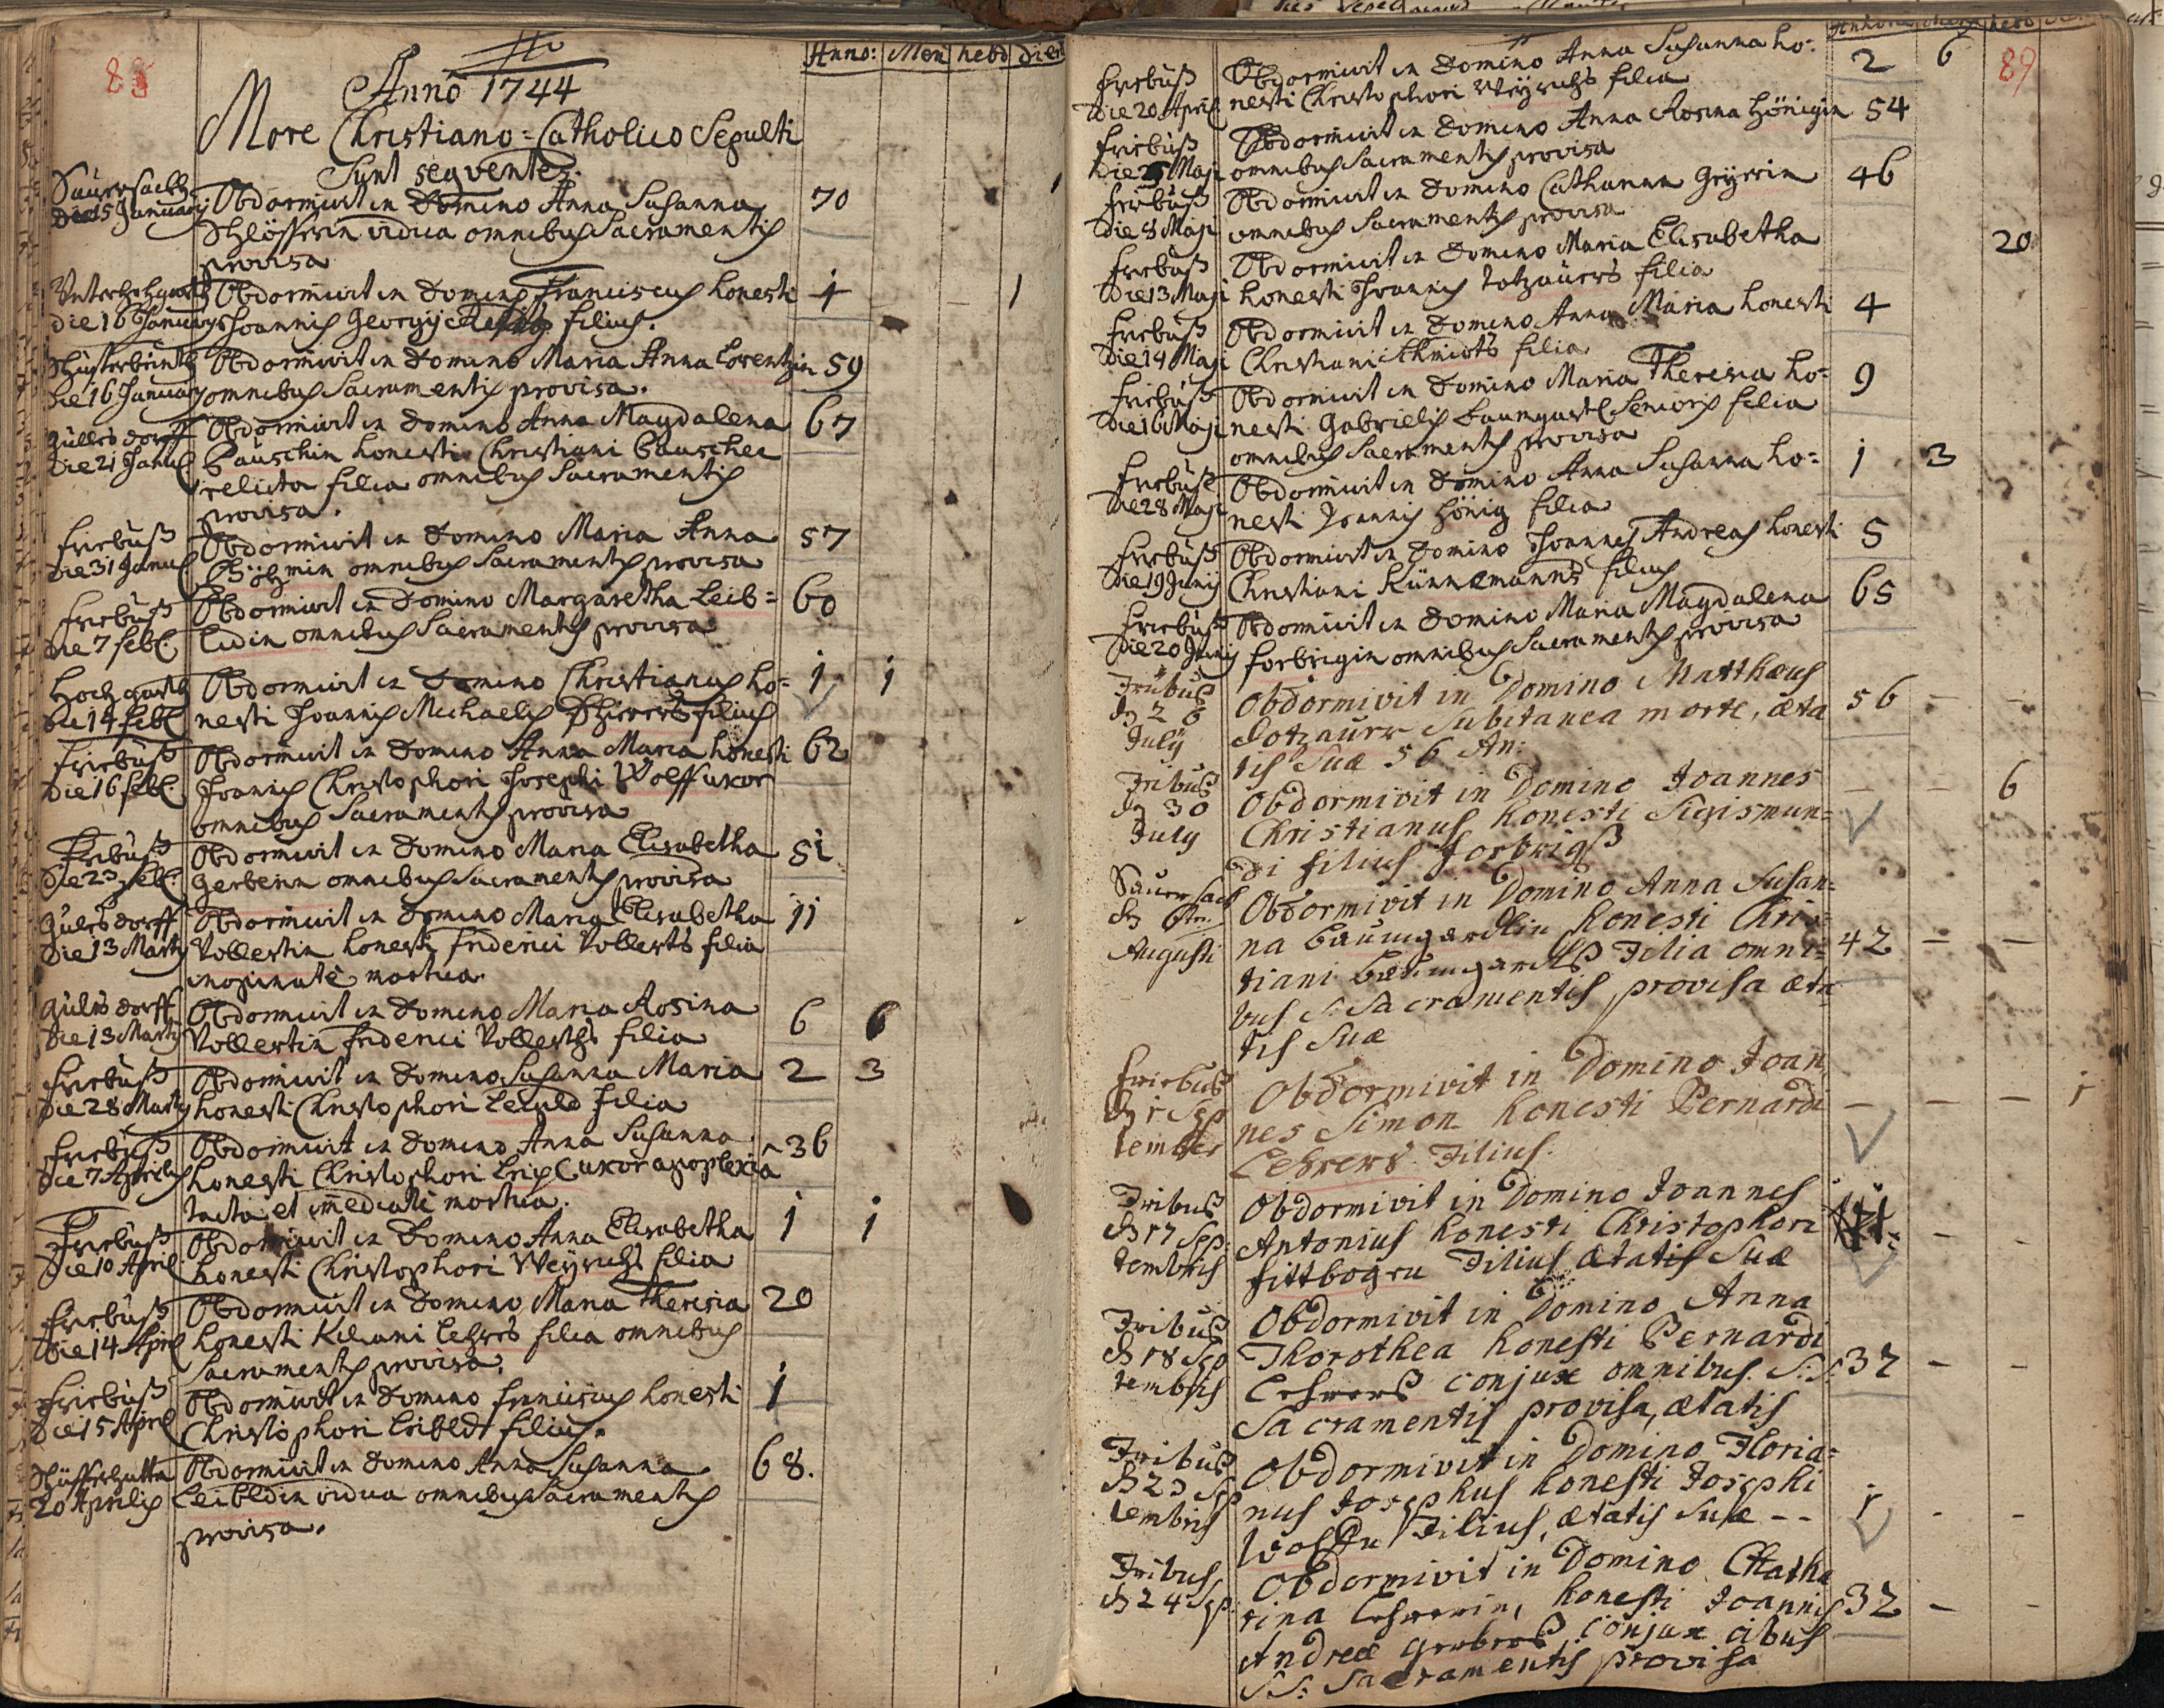 88
Anno: Men hebd dies
Anno 1744
More Christiano=Catholico Sepulti
Sunt seqventes.
Saüersach
Die 15 Januarij
Obdormivit in Domino Anna Susanna 70
Schlösserin vidua omnibus Sacramentis
provisa
Die 16 Januarij
Obdormivit in Domino Franciscus honesti 1
Joannis Georgij filius.
Die 16 Januarij
Obdormivit in Domino Maria Anna Lorentzin 59
omnibus Sacramentis provisa.
Die 21 Januar
Obdormivit in Domino Anna Magdalena 67
Bauschin honesti Christiani Bauscher
relicta filia omnibus Sacramentis
provisa.
Friebüß
Die 31 Januar
Obdormivit in Domino Maria Anna 57
Böhmin omnibus Sacramentis provisa
Friebüß
Die 7 Feb.
Obdormivit in Domino Margaretha Leib= 60
ludin omnibus Sacramentis provisa
Hochgarth
Die 14 Feb.
Obdormivit in Domino Christianus ho= 1 1
nesti Joannis Michaelis filius
Friebüß
Die 16 Feb.
Obdormivit in Domino Anna Maria honesti 62
Joannis Christophori Josephi Wolff uxor
omnibus Sacramentis provisa
Friebüß
Die 23 Feb.
Obdormivit in Domino Maria Elisabetha 51
Gerberin omnibus Sacramentis provisa
Die 13 Martij
Obdormivit in Domino Maria Elisabetha 11
Vollertin honesti Friderici Vollerts filia
inopinatè mortua.
Die 13 Martij
Obdormivit in Domino Maria Rosina 6 6
Vollertin Friderici Vollerths filia
Friebüß
Die 28 Martij
Obdormivit in Domino Susanna Maria 2 3
honesti Christophori Leibld filia
Friebüß
Die 7 Aprilis
Obdormivit in Domino Anna Susanna 36
honesti Christophori uxor apoplexiâ
tacta et imediatè mortua.
Friebüß
Die 10 April
Obdormivit in Domino Anna Elisabetha 1 1
honesti Christophori Weÿrichs filia
Friebüß
Die 14 April
Obdormivit in Domino Maria Theresia 20
honesti Kiliani Lehrers filia omnibus
Sacramentis provisa.
Friebüß
Die 15 April
Obdormivit in Domino Franciscus honesti 1
Christophori Leibldt filius.
20 Aprilis
Obdormivit in Domino Anna Susanna 68.
Leibldin vidua omnibus Sacramentis
provisa.
89
Friebüß
Die 20 April
Obdormivit in Domino Anna Susanna ho= 2 6
nesti Christophori Weÿrichs filia
Friebüß
Die Maji
Obdormivit in Domino Anna Rosina Hönigin 54
omnibus Sacramentis provisa
Friebüß
Die 8 Maji
Obdormivit in Domino Catharina Geÿerin 46
omnibus Sacramentis provisa
Friebüß
Die 13 Maji
Obdormivit in Domino Maria Elisabetha 20
honesti Joannis Totzauers filia
Friebüß
Die 14 Maji
Obdormivit in Domino Anna Maria honesti 4
Christiani Schmidts filia
Friebüß
Die 16 Maji
Obdormivit in Domino Maria Theresia ho= 9
nesti Gabrielis Baumgartl Senioris filia
omnibus Sacramentis provisa
Friebüß
Die 28 Maji
Obdormivit in Domino Anna Susanna ho= 1 3
nesti Joannis Hönig filia
Friebüß
Die 19 Junij
Obdormivit in Domino Joannes Andreas honesti 5
Christiani Künnemanns filius
Friebüß
Die 20 Junij
Obdormivit in Domino Maria Magdalena 65
Forbrigin omnibus Sacramentis provisa
Fribus
26
July
Obdormivit in Domino Matthæus
Dotzaurr Subitanea morte, æta 56 – –
tis Suæ 56 An:
Fribus
30
July
Obdormivit in Domino Joannes – – 6
Christianus honesti Sigismun=
di filius Forbrigß
Sauersack
Augusti
Obdormivit in Domino Anna Susan=
na Baumgardlin honesti Chris=
tiani Baumgardlß Filia omni= 42 – –
bus S. Sacramentis provisa æta
tis Suæ
Friebus
1 Sep
tember
Obdormivit in Domino Joan
nes Simon honesti Bernardi – – – 1
Lehrers Filius.
Fribus
17 Sep
tembris
Obdormivit in Domino Joannes
Antonius honesti Christophori – –
fittbogen Filius ætatis Suæ
Fribus
18 Sep
tembris
Obdormivit in Domino Anna
Thorothea honesti Bernardi
Lehrerß conjux omnibus S:S: 37 – –
Sacramentis provisa, ætatis
Fribus
23 Sep
tembris
Obdormivit in Domino Floria=
nus Josephus honesti Josephi
Filius, ætatis Suæ – – 1 - -
Fribus
24 Sep.
Obdormivit in Domino Catha
rina Lehrerin, honesti Joannis 32 – –
Andreæ Gerberß conjux cibus
S.S: Sacramentis provisa